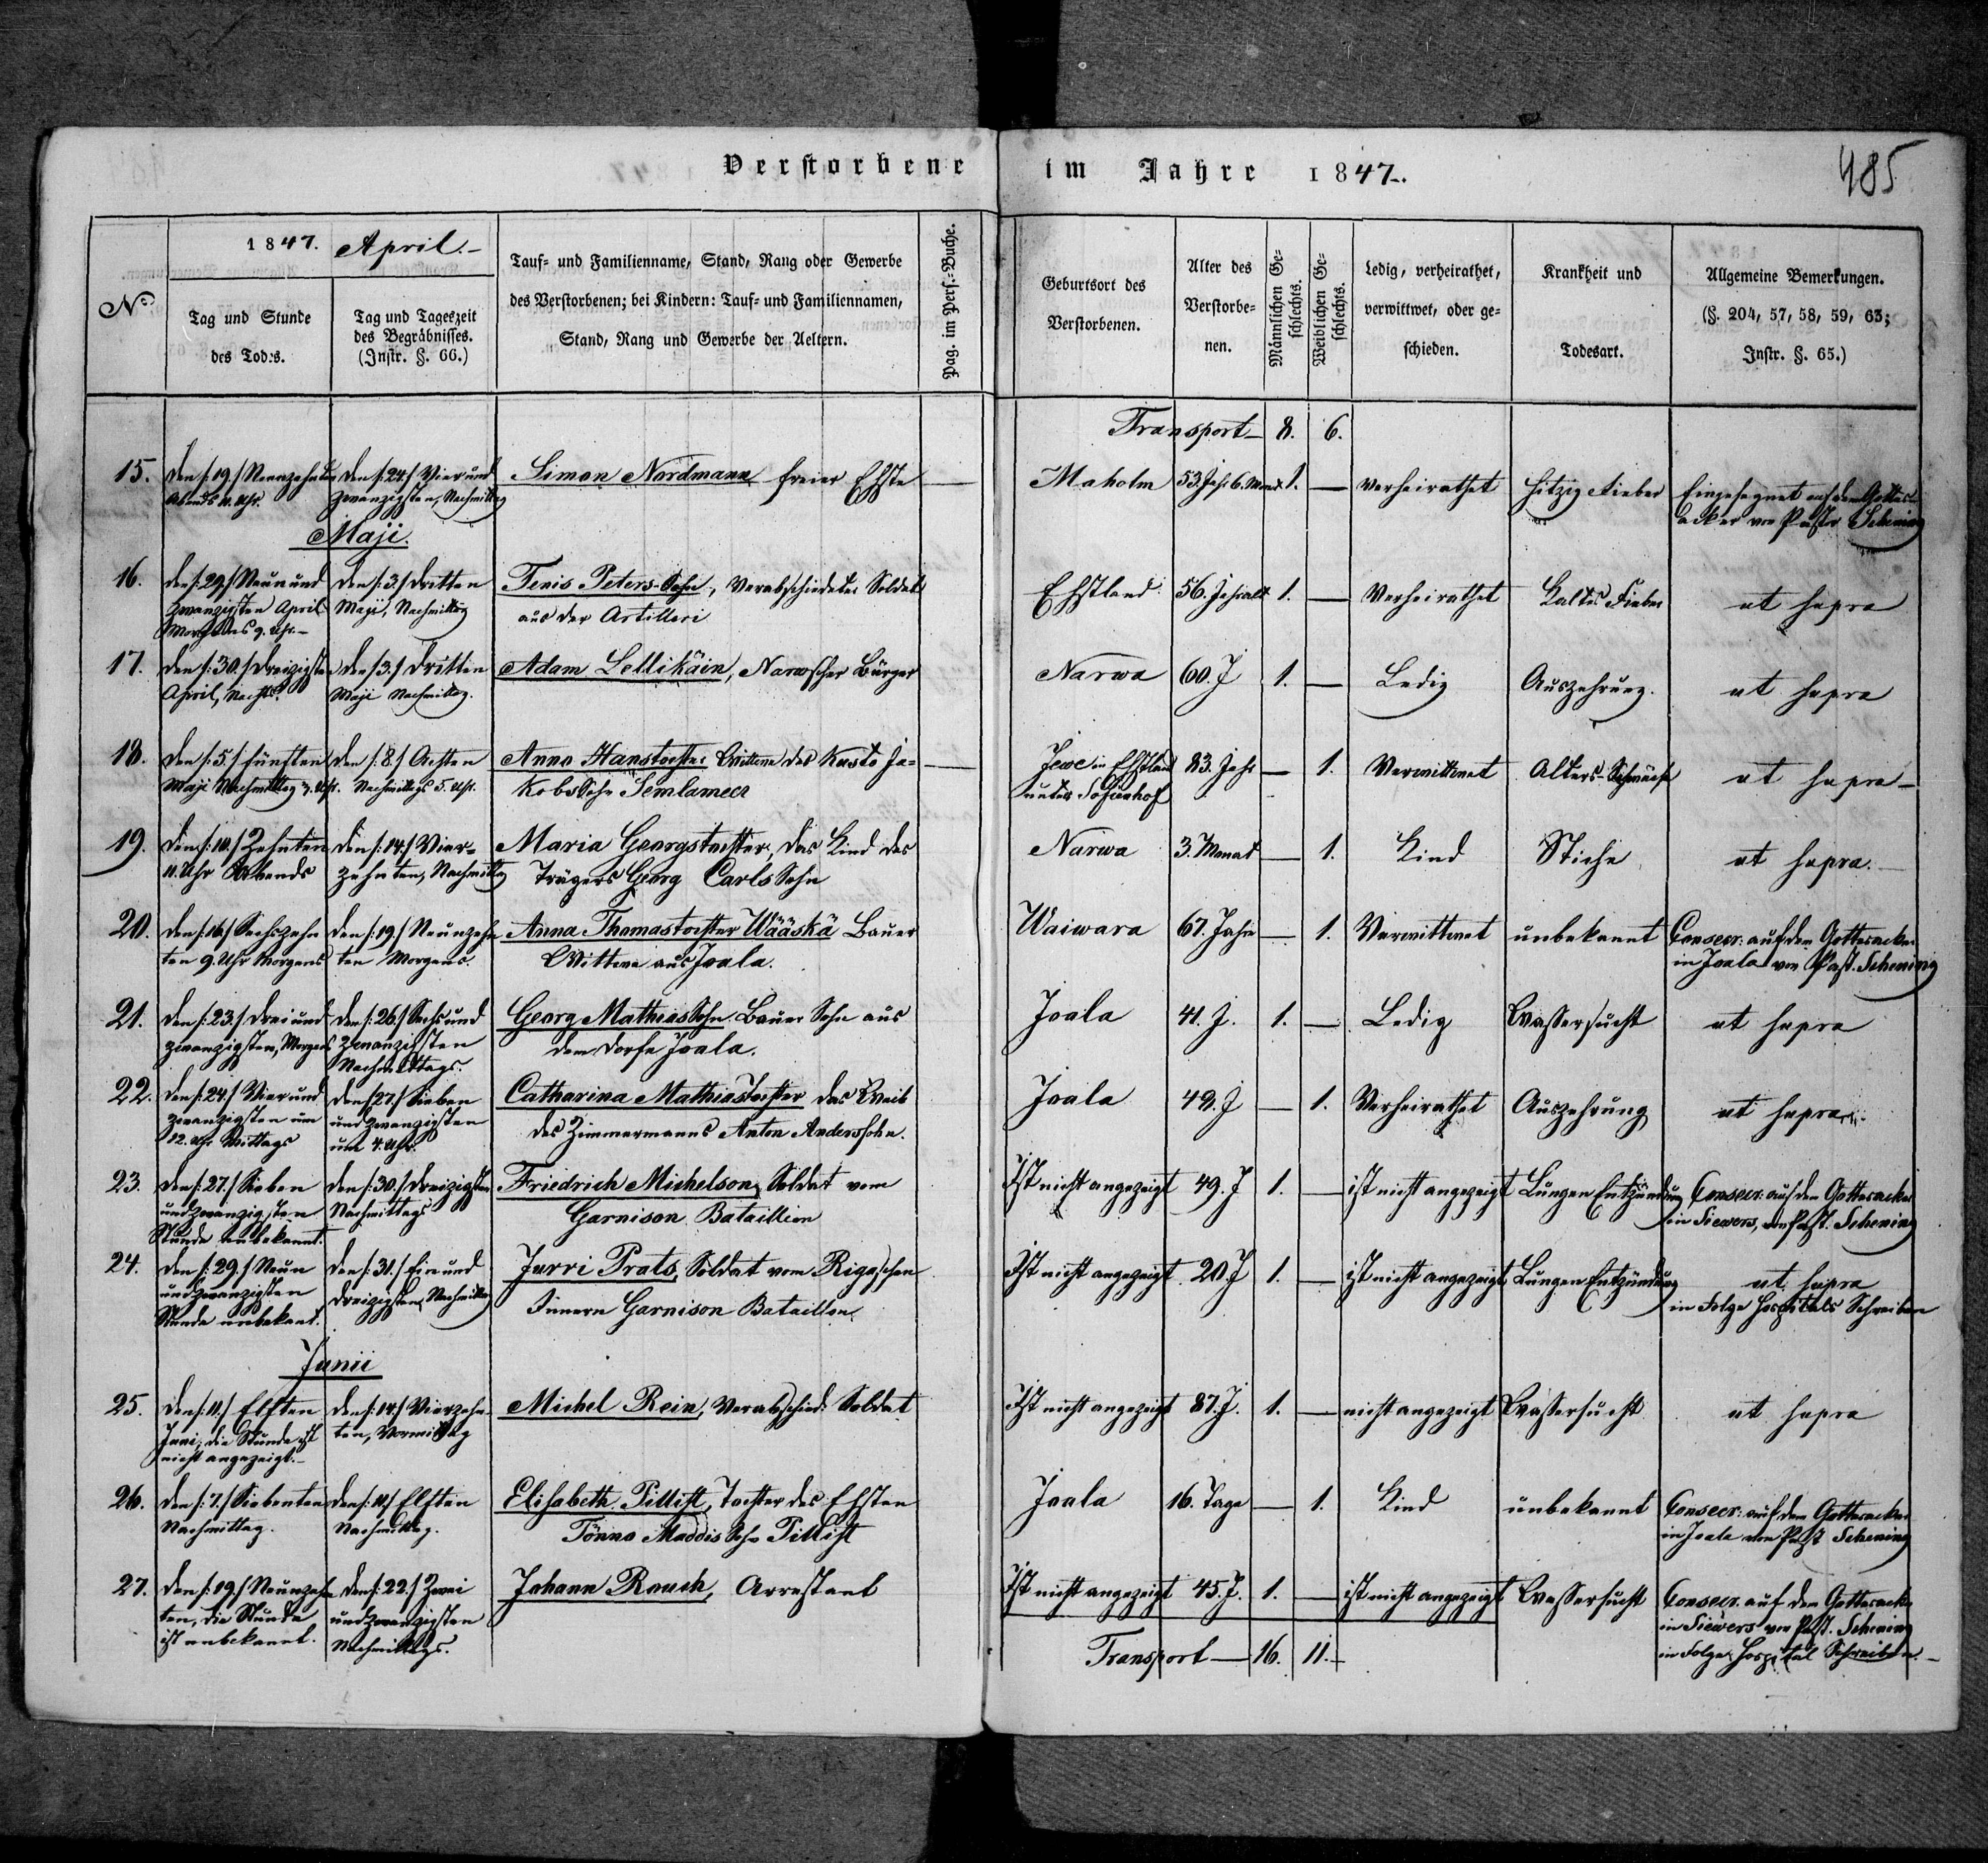 Verstorbene im Jahre 1847.
485
No
1847. April.
Tag und Stunde
des Todes.
Tag und Tageszeit
des Begräbnisses.
(Instr. §. 66.)
Tauf- und Familienname, Stand, Rang oder Gewerbe
des Verstorbenen; bei Kindern: Tauf- und Familiennamen,
Stand, Rang und Gewerbe der Aeltern.
Pag. im Pers.-Buche.
Geburtsort des
Verstorbenen.
Alter des
Verstorbe-
nen.
Männlichen Ge-
schlechts.
Weiblichen Ge-
schlechts.
Ledig, verheirathet,
verwittwet, oder ge-
schieden.
Krankheit und
Todesart.
Allgemeine Bemerkungen.
(§. 204, 57, 58, 59, 63;
Instr. §. 65.)
Transport 8. 6.
15.
den /:19./ Neunzehnten
Abends 11. Uhr.
den /:24./ Vier und
zwanzigsten, Nachmittag
Simon Nordmann freier Ehste
Maholm
53. Jahr 6. Monat
1.
verheirathet
hitzig Fieber
Eingesegnet auf dem Gottes-
acker von Pastor Schening
Maji.
16.
den /:29./ Neun und
zwanzigsten April
Morgens 9. Uhr.
den /:3./ dritten
Maji, Nachmittag
Tenis Peters-Sohn, Verabschiedeter Soldat
aus der Artilleri
Ehstland
56. Jahralt
1.
Verheirathet
Kaltes Fieber
ut supra
17.
den /:30./ dreizigsten
April, Nachts
den /:3./ dritten
Maji Nachmittag.
Adam Lellikäin, Narwscher Bürger
Narwa
60. J
1.
Ledig
Auszehrung.
ut supra
18.
den /:5./ fünften
Maji Nachmittag 3. Uhr.
den /:8./ Achten
Nachmittags 5. Uhr.
Anna Hanstochter Wittwe des Kusto Ja-
kobs Sohn Semlameer
Jewe in Ehstland
unter Sophienhof
83. Jahr
1.
Verwittwet
Alters-Schwäche
ut supra
19.
den /:10./ Zehnten
11. Uhr Abends
den /:14./ Vier-
zehnten, Nachmittag
Maria Georgstochter, das Kind des
Trägers Georg Carls Sohn
Narwa
3. Monat
1.
Kind
Stiche
ut supra.
20.
den /:16./ Sechszehn
ten 9. Uhr Morgens
den /:19./ Neunzehn
ten Morgens.
Anna Thomastochter Wääskä Bauer
Wittwe aus Joala.
Waiwara
67. Jahre
1.
Verwittwet
unbekannt
Consecr: auf dem Gottesacker
in Joala von Past. Schening
21.
den /:23./ drei und
zwanzigsten, Morgens
den /:26./ Sechs und
zwanzigsten
Nachmittags.
Georg Mathias Sohn Bauer Sohn aus
dem Dorfe Joala.
Joala
41. J.
1.
Ledig
Wassersucht
ut supra
22.
den /:24./ Vier und
zwanzigsten um
12. Uhr Mittags
den /:27./ Sieben
und zwanzigsten
um 4. Uhr.
Catharina Mathiastochter das Weib
des Zimmermanns Anton Anderssohn.
Joala
49. J
1.
Verheirathet
Auszehrung
ut supra
23.
den /:27./ Sieben
und zwanzigsten
Stunde unbekannt.
den /:30./ dreizigsten
Nachmittags
Friedrich Michelson, Soldat vom
Garnison Bataillion
Ist nicht angezeigt
49. J
1.
ist nicht angezeigt
Lungen Entzündung
Consecr: auf dem Gottesacker
in Siewers, von Past. Schening
24.
den /:29./ Neun
und zwanzigsten
Stunde unbekant.
den /:31./ Ein und
dreizigsten, Nachmittag
Jurri Prats, Soldat vom Rigaschen
Innern Garnison Bataillon.
Ist nicht angezeigt
20. J
1.
ist nicht angezeigt
Lungen Entzündung
ut supra
in Folge Hospitals Schreiben
Junii
25.
den /:11./ Elften
Juni, die Stunde ist
nicht angezeigt.
den /:14./ Vierzehn-
ten, Vormittag
Michel Rein, Verabschied: Soldat
Ist nicht angezeigt
87. J.
1.
nicht angezeigt
Wassersucht
ut supra
26.
den /:7./ Siebenten
Nachmittag.
den /:11./ Elften
Nachmittag.
Elisabeth Pillist, Tochter des Ehsten
Tönno Maddis Sohn Pillist
Joala
16. Tage
1.
Kind
unbekannt
Consecr: auf dem Gottesacker
in Joala von Past Schening
27.
den /:19./ Neunzehn
ten, die Stunde
ist unbekannt.
den /:22./ Zwei
und zwanzigsten
Nachmittags.
Johann Rauch, Arrestant
Ist nicht angezeigt
45. J.
1.
ist nicht angezeigt
Wassersucht
Consecr. auf dem Gottesacker
in Siewers von Past. Schening
in Folge Hospital Schreiben.
Transport 16. 11.